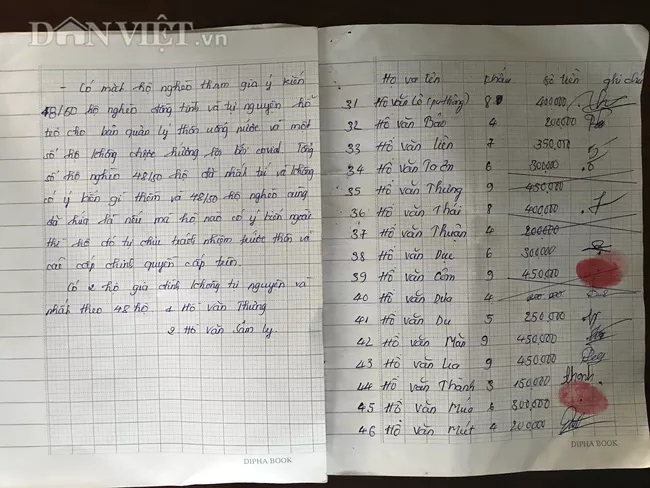 DÂN VIỆT.vn
- Có mặt hộ nghèo tham gia ý kiến
48/50 hộ nghèo đồng tình và tự nguyện hỗ
trợ cho ban quản lý thôn uống nước và một
số hộ không được hưởng lợi bởi covid. Tổng
số hộ nghèo 48/50 hộ đã nhất trí và không
có ý bàn gì thêm và 48/50 hộ nghèo cũng
đã hứa là nếu mà hộ nào có ý kiến ngoài
thì hộ đó tự chịu trách nhiệm trước thôn và
các cấp chính quyền cấp trên.
Có 2 hộ gia đình không tự nguyện và
nhất theo 48 hộ 1 Hồ Văn Thưng
2 Hồ Văn Sâm ly.
DIPHA BOOK
Họ và tên khẩu số tiền ghi chú
31 Hồ Văn Lô 8 400,000
32 Hồ Văn Bảo 4 200,000
33 Hồ Văn Liên 7 350,000
34 Hồ Văn 6 300,000
35 Hồ Văn Thưng 9 450,000
36 Hồ Văn Thái 8 400,000
37 Hồ Văn Thuận 4 200,000
38 Hồ Văn Dục 6 300,000
39 Hồ Văn Côm 9 450,000
40 Hồ Văn Dưa 4 200,000
41 Hồ Văn Du 5 250,000
42 Hồ Văn Màn 9 450,000
43 Hồ Văn Lưa 9 450,000
44 Hồ Văn Thanh 3 150,000 Thanh
45 Hồ Văn Múa 6 300,000
46 Hồ Văn Mút 4 200,000
DIPHA BOOK